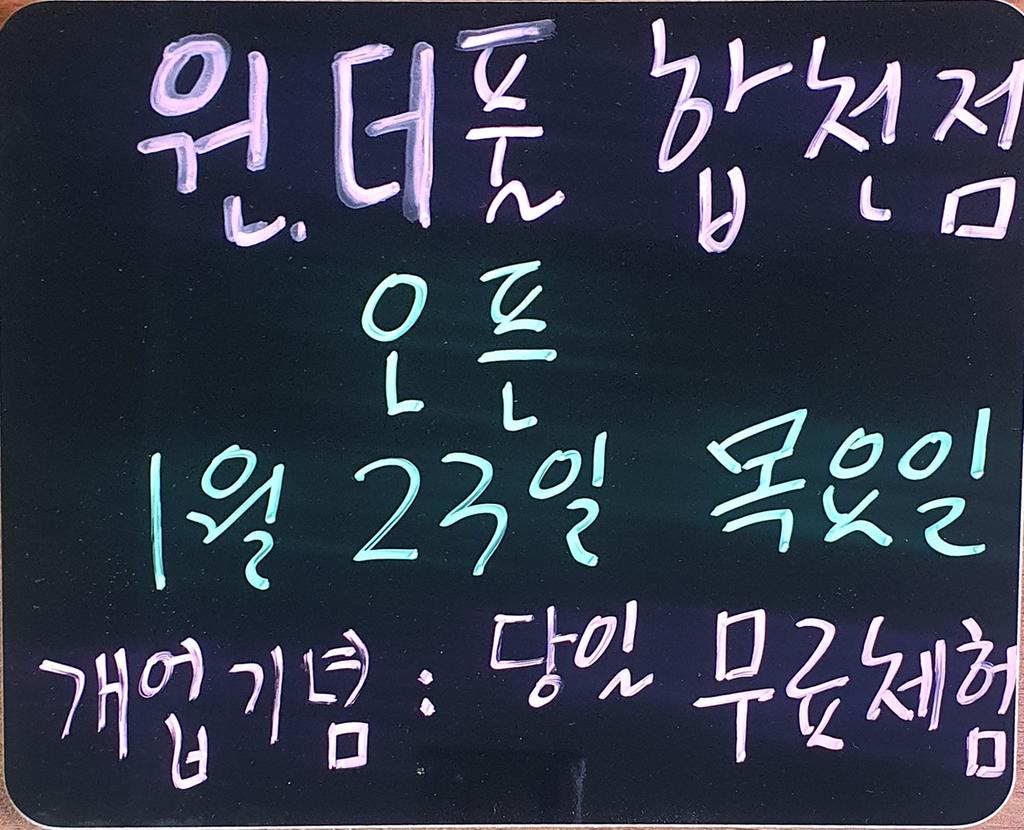 원.더풀 합천점
오픈
1월 23일 목요일
개업기념 : 당일 무료체험